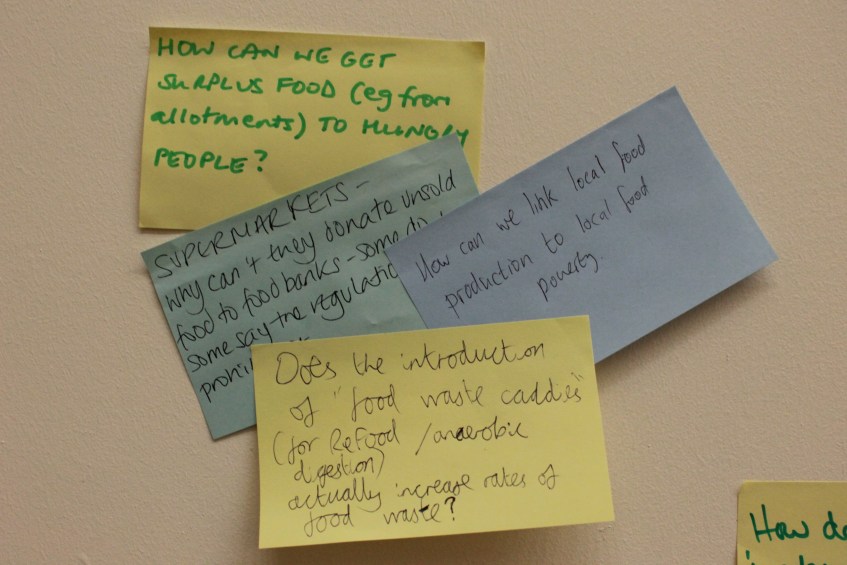 HOW CAN WE GET
SURPLUS FOOD (eg from
allotments) TO HUNGRY
PEOPLE?
SUPERMARKETS -
why can't they donate unsold
food to foodbanks - some do,
some say the
How can we link local food
production to local food
poverty.
Does the introduction
of "food waste caddies"
(for ReFood /anaerobic
digestion)
actually increase rates of
food waste?
How do